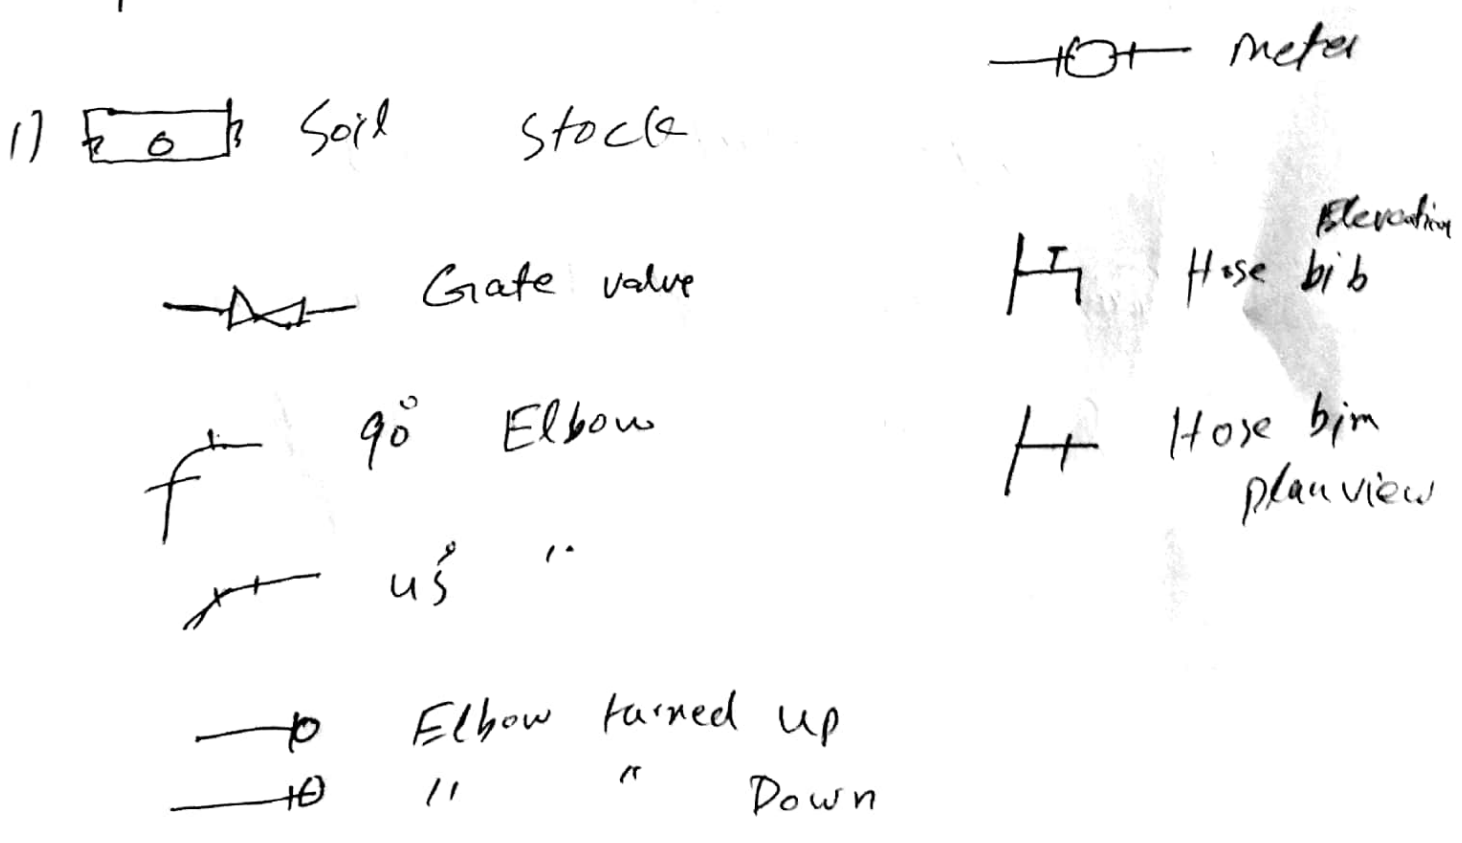 1) Soil Stock
Gate valve
90° Elbow
45° "
Elbow turned up
" " Down
meter
Elevation
Hose bib
Hose bim
plan view